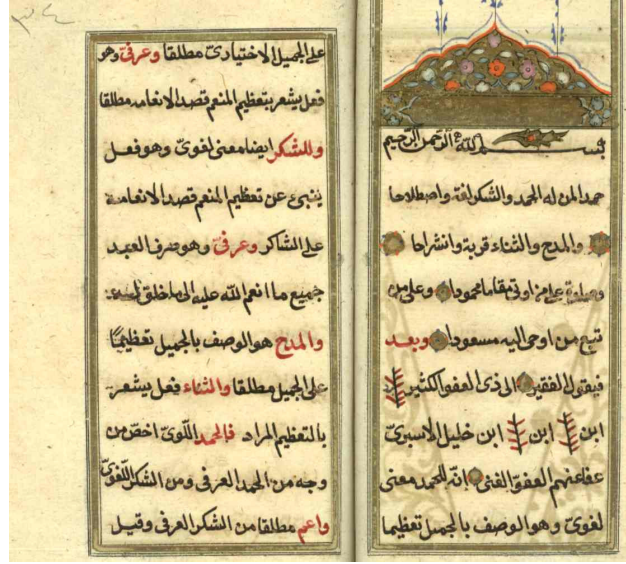 بسم الله الرحمن الرحيم
حمدا لمن له الحمد والشكر لغة واصطلاحا
والمدح والثناء قربة وانشراحا
وصلوة على من اوتى مقاما محمودا وعلى من
تبع من اوحى اليه مسعودا وبعد
فيقول الفقير الى ذى العفو الكثير
ابن ابن ابن خليل
عفا عنهم العفو الغنى انه للحمد معنى
لغوى وهو الوصف بالجميل تعظيما
على الجميل الاختيارى مطلقا وعرفى وهو
فعل يشعر بتعظيم المنعم قصد الانعامه مطلقا
وللشكر ايضا معنى لغوى وهو فعل
ينبئ عن تعظيم المنعم قصد الانعامه
على الشاكر وعرفى وهو صرف العبد
جميع ما انعم الله عليه الى ما خلق
والمدح هو الوصف بالجميل تعظيما
على الجميل مطلقا والثناء فعل يشعر
بالتعظيم المراد فالحمد اللغوى اخص من
وجه من الحمد العرفى ومن الشكر اللغوى
واعم مطلقا من الشكر العرفى وقيل